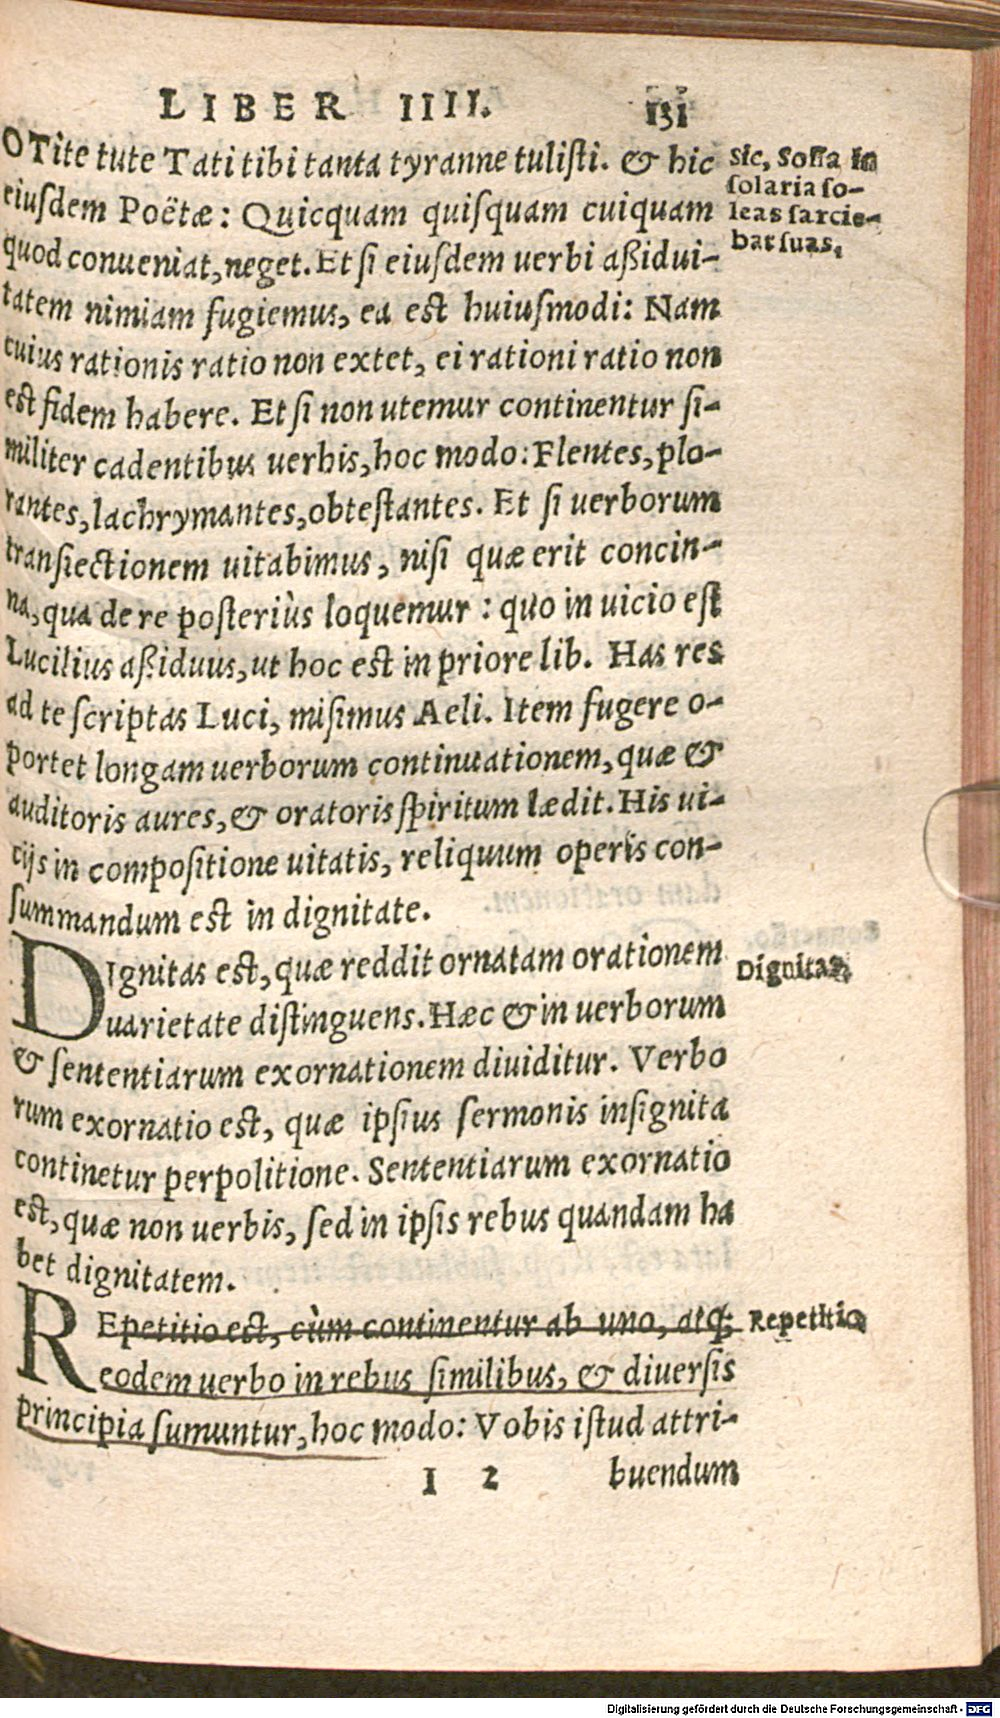 LIBER IIII. 131
O Tite tute Tati tibi tanta tyranne tulisti. & hic
eiusdem Poëtæ: Quicquam quisquam cuiquam
quod conueniat, neget. Et si eiusdem uerbi aßidui-
tatem nimiam fugiemus, ea est huiusmodi: Nam
cuius rationis ratio non extet, ei rationi ratio non
est fidem habere. Et si non utemur continentur si-
militer cadentibus uerbis, hoc modo: Flentes, plo-
rantes, lachrymantes, obtestantes. Et si uerborum
transiectionem uitabimus, nisi quæ erit concin-
na, qua de re posteriùs loquemur: quo in uicio est
Lucilius aßiduus, ut hoc est in priore lib. Has res
ad te scriptas Luci, misimus Aeli. Item fugere o-
portet longam uerborum continuationem, quæ &
auditoris aures, & oratoris spiritum lædit. His ui-
cijs in compositione uitatis, reliquum operis con-
summandum est in dignitate.
DIgnitas est, quæ reddit ornatam orationem
uarietate distinguens. Hæc & in uerborum
& sententiarum exornationem diuiditur. Verbo
rum exornatio est, quæ ipsius sermonis insignita
continetur perpolitione. Sententiarum exornatio
est, quæ non uerbis, sed in ipsis rebus quandam ha
bet dignitatem.
REpetitio est, cùm continentur ab uno, atq;
eodem uerbo in rebus similibus, & diuersis
principia sumuntur, hoc modo: Vobis istud attri-
I 2 buendum
Sic, Sosia in
solaria so-
leas sarcie-
bat suas.
Dignitas.
Repetitio
Digitalisierung gefördert durch die Deutsche Forschungsgemeinschaft - DFG